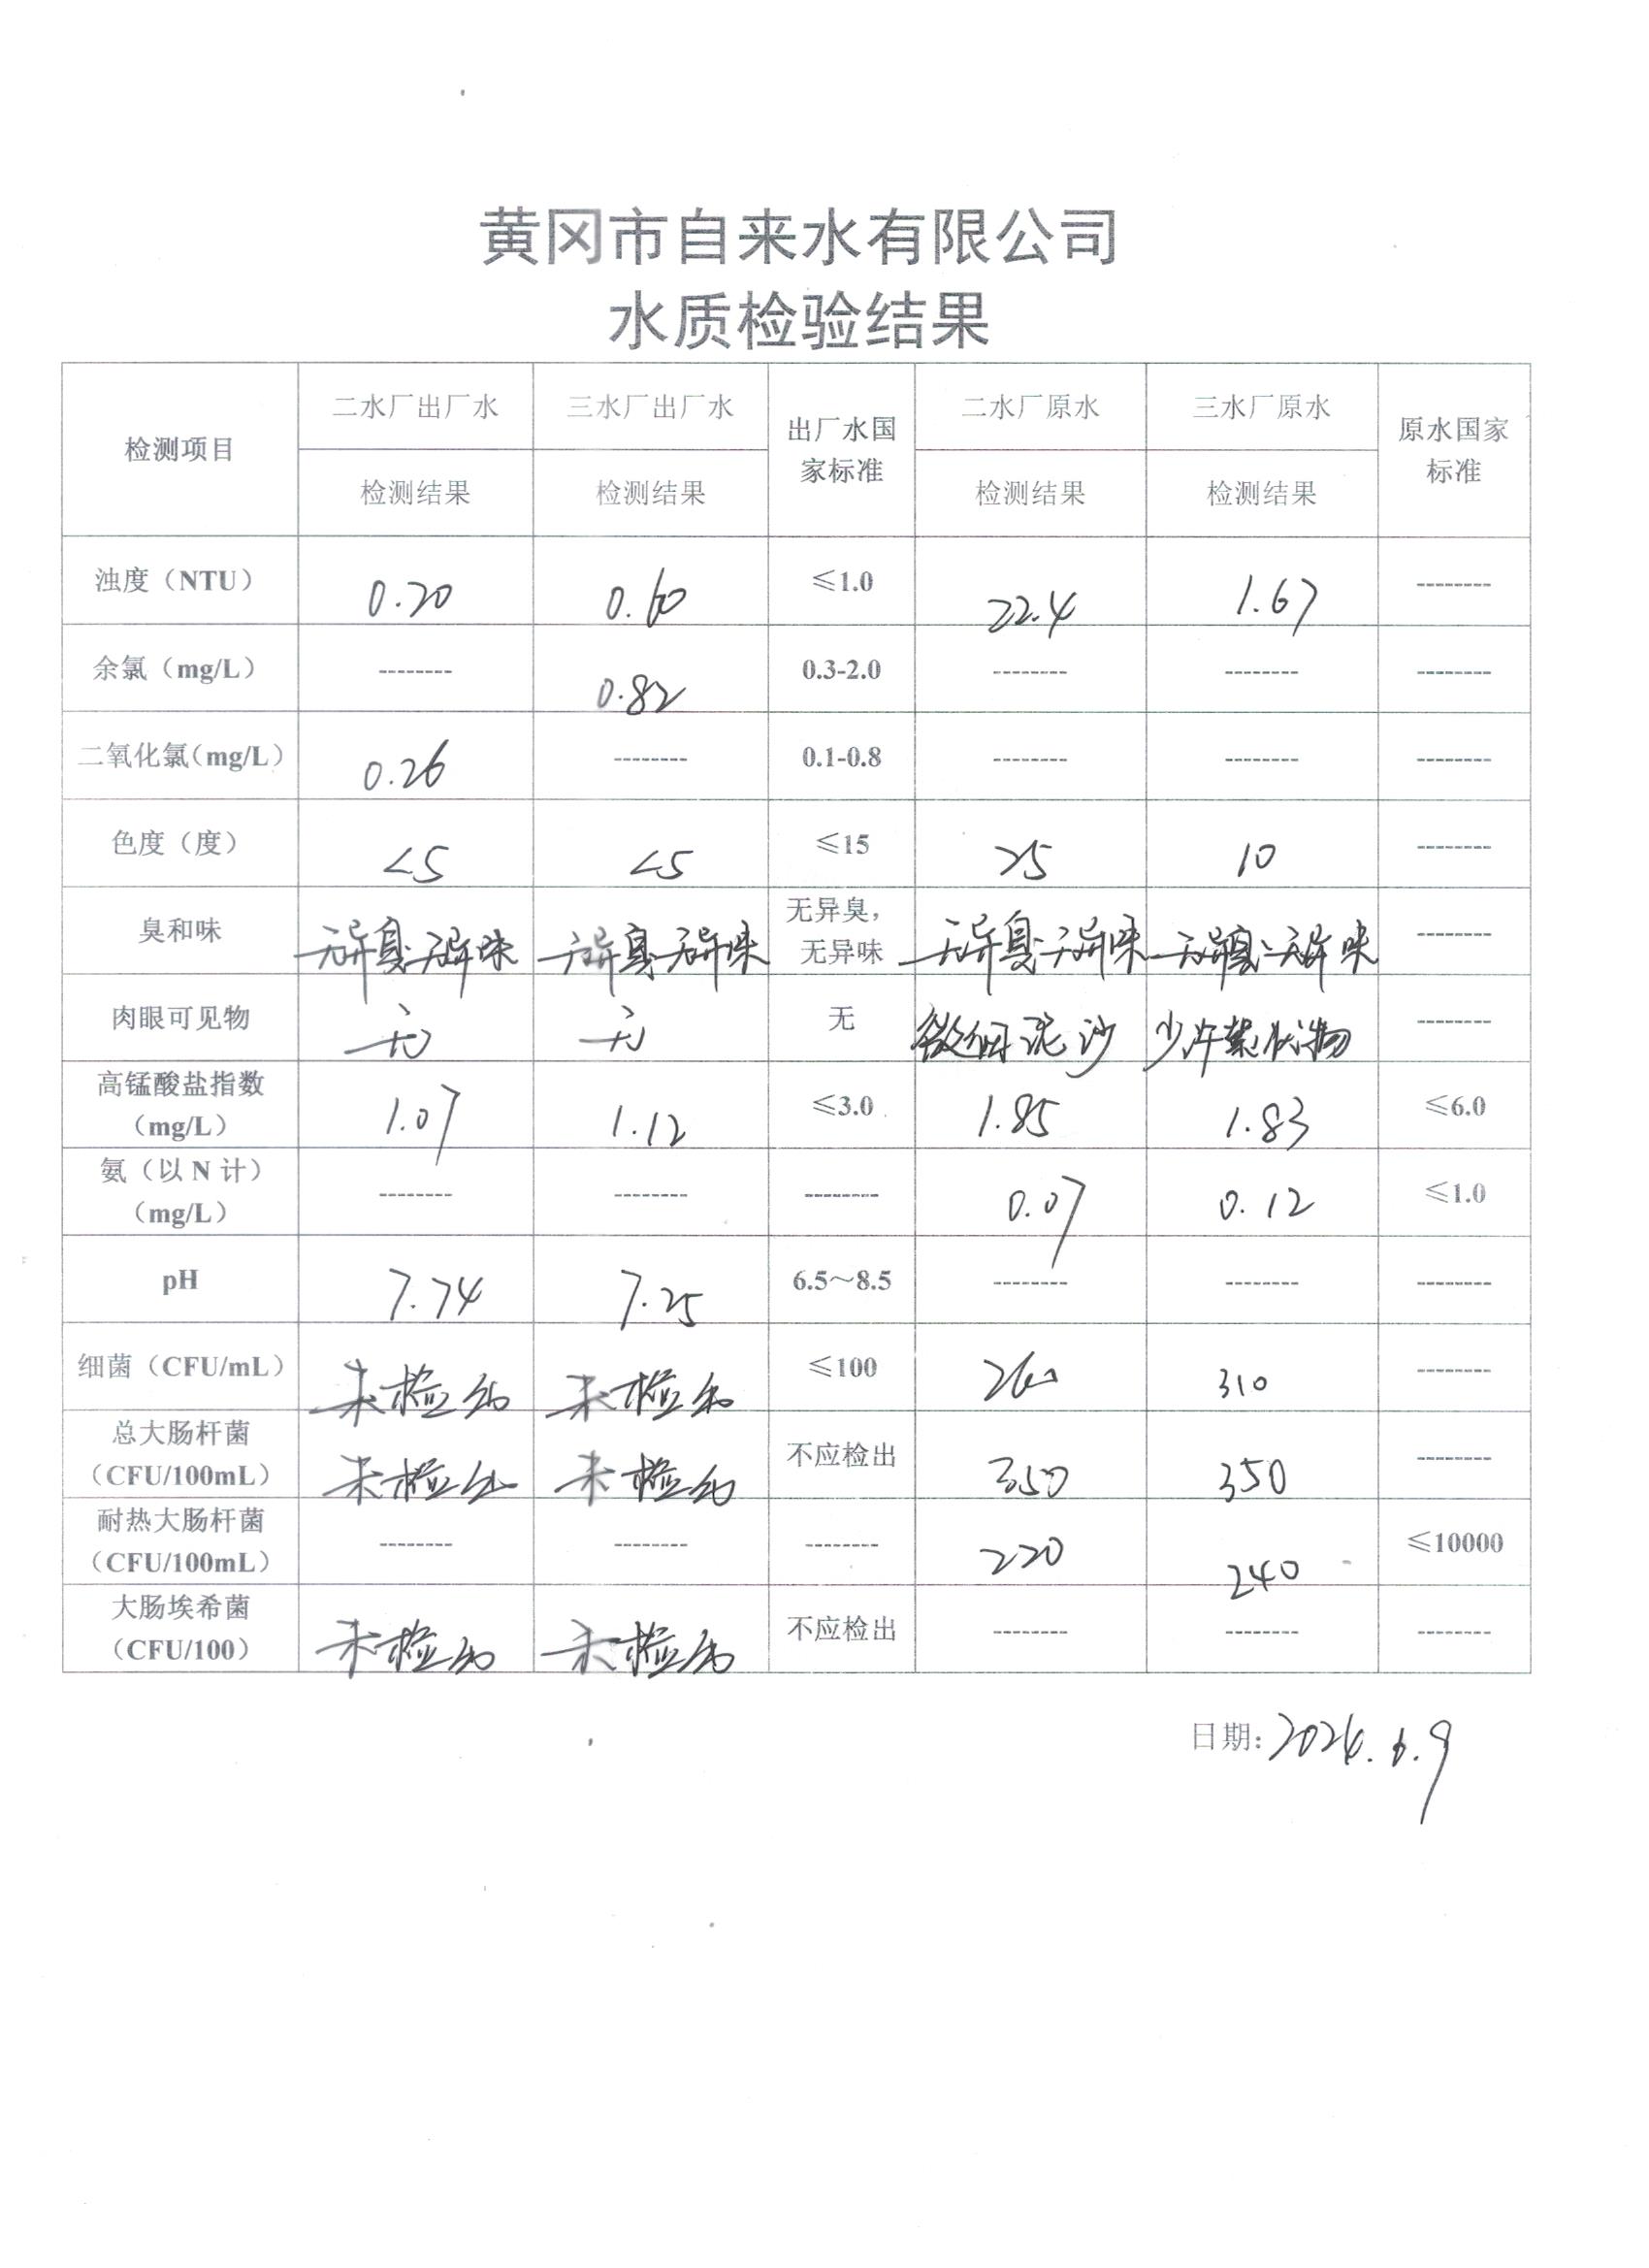 黄冈市自来水有限公司
水质检验结果
检测项目 二水厂出厂水 三水厂出厂水 出厂水国家标准 二水厂原水 三水厂原水 原水国家标准
检测结果 检测结果 检测结果 检测结果
浊度（NTU） 0.20 0.60 ≤1.0 22.4 1.67 --------
余氯（mg/L） -------- 0.82 0.3-2.0 -------- -------- --------
二氧化氯（mg/L） 0.26 -------- 0.1-0.8 -------- -------- --------
色度（度） <5 <5 ≤15 25 10 --------
臭和味 无异臭、无异味 无异臭、无异味 无异臭，无异味 无异臭、无异味 无异臭、无异味 --------
肉眼可见物 无 无 无 微细泥沙 少许絮状物 --------
高锰酸盐指数（mg/L） 1.07 1.12 ≤3.0 1.85 1.83 ≤6.0
氨（以 N 计）（mg/L） -------- -------- -------- 0.07 0.12 ≤1.0
pH 7.74 7.25 6.5～8.5 -------- -------- --------
细菌（CFU/mL） 未检出 未检出 ≤100 260 310 --------
总大肠杆菌（CFU/100mL） 未检出 未检出 不应检出 350 350 --------
耐热大肠杆菌（CFU/100mL） -------- -------- -------- 220 240 ≤10000
大肠埃希菌（CFU/100） 未检出 未检出 不应检出 -------- -------- --------
日期: 2024.6.9